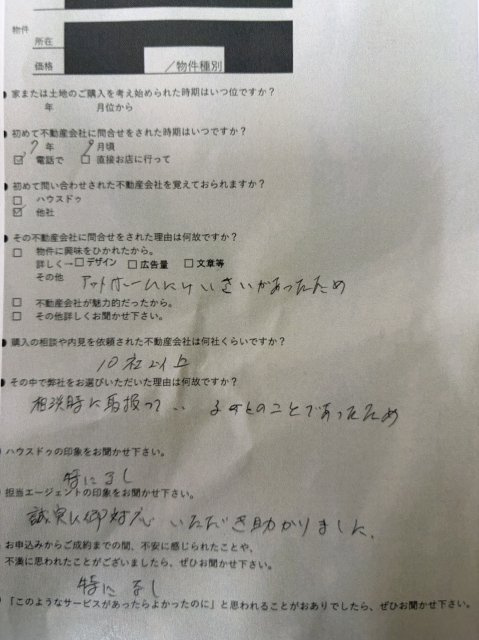 物件
所在
価格 /物件種別
●家または土地のご購入を考え始められた時期はいつ位ですか?
年 月位から
●初めて不動産会社に問合せをされた時期はいつですか?
7年 9月頃
☑ 電話で □ 直接お店に行って
●初めて問い合わせされた不動産会社を覚えておられますか?
□ ハウスドゥ
☑ 他社
●その不動産会社に問合せをされた理由は何故ですか?
□ 物件に興味をひかれたから。
詳しく→□デザイン □広告量 □文章等
その他 アットホームにけいさいがあったため
□ 不動産会社が魅力的だったから。
□ その他詳しくお聞かせ下さい。
●購入の相談や内見を依頼された不動産会社は何社くらいですか?
10社以上
●その中で弊社をお選びいただいた理由は何故ですか?
相談時に とのことであったため
ハウスドゥの印象をお聞かせ下さい。
特になし
担当エージェントの印象をお聞かせ下さい。
誠実に御対応いただき助かりました。
お申込みからご成約までの間、不安に感じられたことや、
不満に思われたことがございましたら、ぜひお聞かせ下さい。
特になし
「このようなサービスがあったらよかったのに」と思われることがおありでしたら、ぜひお聞かせ下さい。